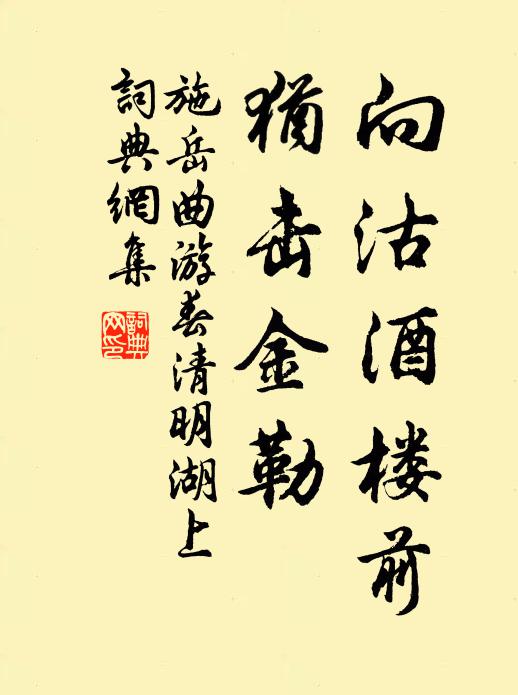 向沽酒楼前
猶击金勒
施岳曲游春清明湖上
詞典網集
詞典
网印